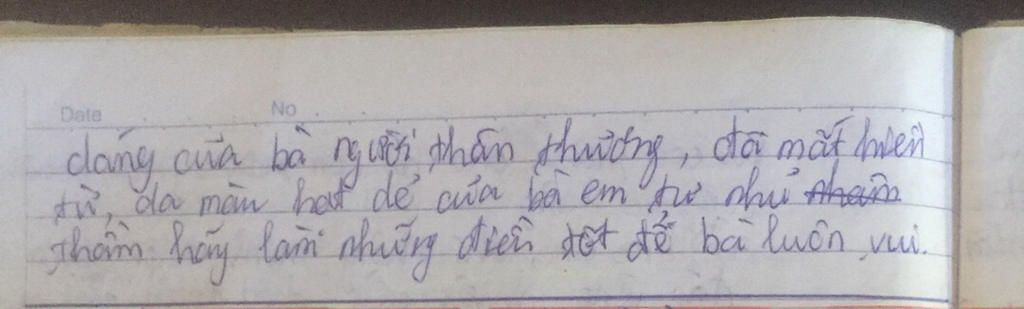 Date No
dáng của bà người thân thương, đôi mắt hiền
từ, da màu hạt dẻ của bà em tự nhủ
thầm hãy làm những điều tốt để bà luôn vui.